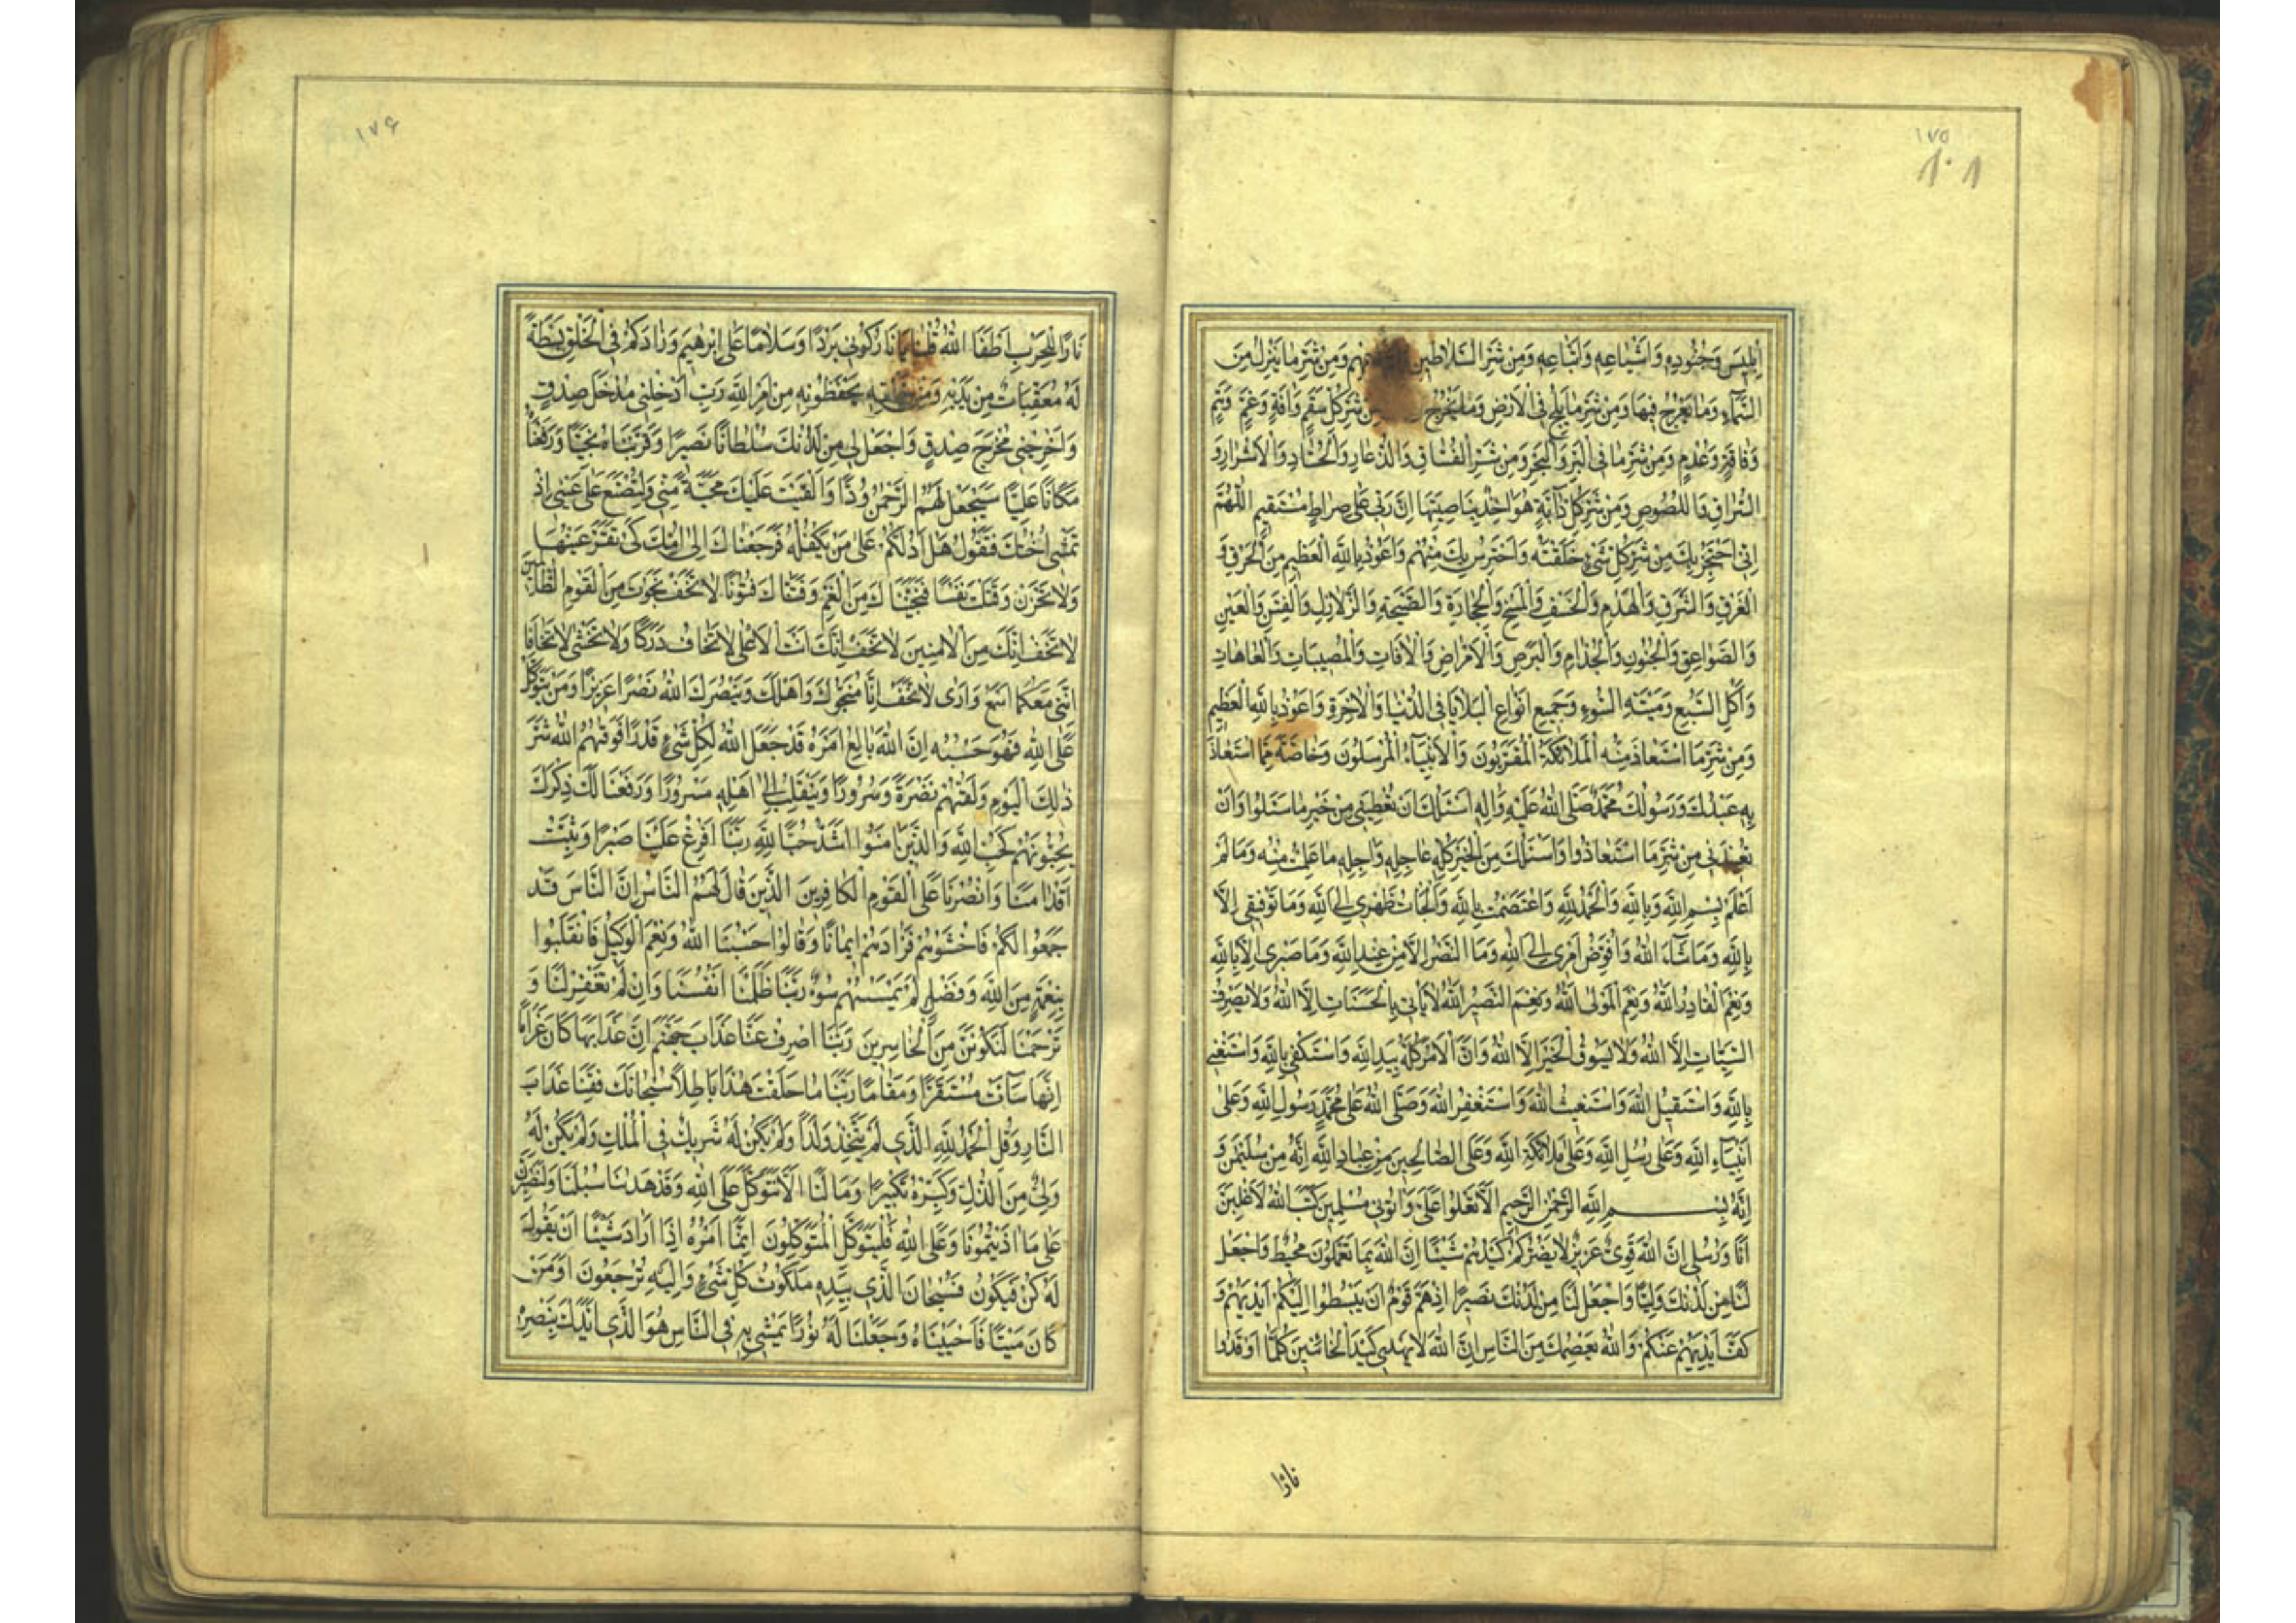 ١٧٥
١٠١
اِبْلِيسَ وَجُنُودِهِ وَاَشْيَاعِهِ وَاَتْبَاعِهِ وَمِنْ شَرِّ السَّلَاطِينِ وَمِنْ شَرِّ مَا يَنْزِلُ مِنَ
السَّمَاءِ وَمَا يَعْرُجُ فِيهَا وَمِنْ شَرِّ مَا يَلِجُ فِي الْاَرْضِ وَمَا يَخْرُجُ مِنْ شَرِّ كُلِّ سُقْمٍ وَاٰفَةٍ وَغَمٍّ وَهَمٍّ
وَفَاقَةٍ وَعُدْمٍ وَمِنْ شَرِّ مَا فِي الْبَرِّ وَالْبَحْرِ وَمِنْ شَرِّ الْفُسَّاقِ وَالذُّعَّارِ وَالْحُسَّادِ وَالْاَشْرَارِ وَ
السُّرَّاقِ وَاللُّصُوصِ وَمِنْ شَرِّ كُلِّ دَابَّةٍ هُوَ اٰخِذٌ بِنَاصِيَتِهَا اِنَّ رَبِّي عَلَى صِرَاطٍ مُسْتَقِيمٍ اَللّٰهُمَّ
اِنِّي اَحْتَجِزُ بِكَ مِنْ شَرِّ كُلِّ شَيْءٍ خَلَقْتَهُ وَاَحْتَرِسُ بِكَ مِنْهُمْ وَاَعُوذُ بِاللّٰهِ الْعَظِيمِ مِنَ الْحَرَقِ وَ
الْغَرَقِ وَالشَّرَقِ وَالْهَدْمِ وَالْخَسْفِ وَالْمَسْخِ وَالْحِجَارَةِ وَالصَّيْحَةِ وَالزَّلَازِلِ وَالْفِتَنِ وَالْعَيْنِ
وَالصَّوَاعِقِ وَالْجُنُونِ وَالْجُذَامِ وَالْبَرَصِ وَالْاَمْرَاضِ وَالْاٰفَاتِ وَالْمُصِيبَاتِ وَالْعَاهَاتِ
وَاَكْلِ السَّبُعِ وَمِيتَةِ السُّوءِ وَجَمِيعِ اَنْوَاعِ الْبَلَايَا فِي الدُّنْيَا وَالْاٰخِرَةِ وَاَعُوذُ بِاللّٰهِ الْعَظِيمِ
وَمِنْ شَرِّ مَا اسْتَعَاذَ مِنْهُ الْمَلَائِكَةُ الْمُقَرَّبُونَ وَالْاَنْبِيَاءُ الْمُرْسَلُونَ وَخَاصَّةً مِمَّا اسْتَعَاذَ
بِهِ عَبْدُكَ وَرَسُولُكَ مُحَمَّدٌ صَلَّى اللّٰهُ عَلَيْهِ وَاٰلِهِ اَسْئَلُكَ اَنْ تُعْطِيَنِي مِنْ خَيْرِ مَا سَئَلُوا وَاَنْ
تُعِيذَنِي مِنْ شَرِّ مَا اسْتَعَاذُوا وَاَسْئَلُكَ مِنَ الْخَيْرِ كُلِّهِ عَاجِلِهِ وَاٰجِلِهِ مَا عَلِمْتُ مِنْهُ وَمَا لَمْ
اَعْلَمْ بِسْمِ اللّٰهِ وَبِاللّٰهِ وَالْحَمْدُ لِلّٰهِ وَاعْتَصَمْتُ بِاللّٰهِ وَاَلْجَاْتُ ظَهْرِي اِلَى اللّٰهِ وَمَا تَوْفِيقِي اِلَّا
بِاللّٰهِ وَمَا شَاءَ اللّٰهُ وَاُفَوِّضُ اَمْرِي اِلَى اللّٰهِ وَمَا النَّصْرُ اِلَّا مِنْ عِنْدِ اللّٰهِ وَمَا صَبْرِي اِلَّا بِاللّٰهِ
وَنِعْمَ الْقَادِرُ اللّٰهُ وَنِعْمَ الْمَوْلَى اللّٰهُ وَنِعْمَ النَّصِيرُ اللّٰهُ لَا يَاْتِي بِالْحَسَنَاتِ اِلَّا اللّٰهُ وَلَا يَصْرِفُ
السَّيِّئَاتِ اِلَّا اللّٰهُ وَلَا يَسُوقُ الْخَيْرَ اِلَّا اللّٰهُ وَاَنَّ الْاَمْرَ كُلَّهُ بِيَدِ اللّٰهِ وَاَسْتَكْفِي بِاللّٰهِ وَاَسْتَغْنِي
بِاللّٰهِ وَاَسْتَقِيلُ اللّٰهَ وَاَسْتَغِيثُ اللّٰهَ وَاَسْتَغْفِرُ اللّٰهَ وَصَلَّى اللّٰهُ عَلَى مُحَمَّدٍ رَسُولِ اللّٰهِ وَعَلَى
اَنْبِيَاءِ اللّٰهِ وَعَلَى رُسُلِ اللّٰهِ وَعَلَى مَلَائِكَةِ اللّٰهِ وَعَلَى الصَّالِحِينَ مِنْ عِبَادِ اللّٰهِ اِنَّهُ مِنْ سُلَيْمٰنَ وَ
اِنَّهُ بِسْمِ اللّٰهِ الرَّحْمٰنِ الرَّحِيمِ اَلَّا تَعْلُوا عَلَيَّ وَاْتُونِي مُسْلِمِينَ كَتَبَ اللّٰهُ لَاَغْلِبَنَّ
اَنَا وَرُسُلِي اِنَّ اللّٰهَ قَوِيٌّ عَزِيزٌ لَا يَضُرُّكُمْ كَيْدُهُمْ شَيْئًا اِنَّ اللّٰهَ بِمَا تَعْمَلُونَ مُحِيطٌ وَاجْعَلْ
لَنَا مِنْ لَدُنْكَ وَلِيًّا وَاجْعَلْ لَنَا مِنْ لَدُنْكَ نَصِيرًا اِذْ هَمَّ قَوْمٌ اَنْ يَبْسُطُوا اِلَيْكُمْ اَيْدِيَهُمْ وَ
كَفَّ اَيْدِيَهُمْ عَنْكُمْ وَاللّٰهُ يَعْصِمُكَ مِنَ النَّاسِ اِنَّ اللّٰهَ لَا يَهْدِي كَيْدَ الْخَائِنِينَ كُلَّمَا اَوْقَدُوا
نارًا
١٧۶
نَارًا لِلْحَرْبِ اَطْفَاَ اللّٰهُ قُلْنَا يَا نَارُ كُونِي بَرْدًا وَسَلَامًا عَلَى اِبْرٰهِيمَ وَزَادَكُمْ فِي الْخَلْقِ بَسْطَةً
لَهُ مُعَقِّبَاتٌ مِنْ بَيْنِ يَدَيْهِ وَمِنْ خَلْفِهِ يَحْفَظُونَهُ مِنْ اَمْرِ اللّٰهِ رَبِّ اَدْخِلْنِي مُدْخَلَ صِدْقٍ
وَاَخْرِجْنِي مُخْرَجَ صِدْقٍ وَاجْعَلْ لِي مِنْ لَدُنْكَ سُلْطَانًا نَصِيرًا وَقَرَّبْنَاهُ نَجِيًّا وَرَفَعْنَاهُ
مَكَانًا عَلِيًّا سَيَجْعَلُ لَهُمُ الرَّحْمٰنُ وُدًّا وَاَلْقَيْتُ عَلَيْكَ مَحَبَّةً مِنِّي وَلِتُصْنَعَ عَلَى عَيْنِي اِذْ
تَمْشِي اُخْتُكَ فَتَقُولُ هَلْ اَدُلُّكُمْ عَلَى مَنْ يَكْفُلُهُ فَرَجَعْنَاكَ اِلَى اُمِّكَ كَيْ تَقَرَّ عَيْنُهَا
وَلَا تَحْزَنَ وَقَتَلْتَ نَفْسًا فَنَجَّيْنَاكَ مِنَ الْغَمِّ وَفَتَنَّاكَ فُتُونًا لَا تَخَفْ نَجَوْتَ مِنَ الْقَوْمِ الظَّالِمِينَ
لَا تَخَفْ اِنَّكَ مِنَ الْاٰمِنِينَ لَا تَخَفْ اِنَّكَ اَنْتَ الْاَعْلَى لَا تَخَافُ دَرَكًا وَلَا تَخْشَى لَا تَخَافَا
اِنَّنِي مَعَكُمَا اَسْمَعُ وَاَرَى لَا تَخَفْ اِنَّا مُنَجُّوكَ وَاَهْلَكَ وَيَنْصُرَكَ اللّٰهُ نَصْرًا عَزِيزًا وَمَنْ يَتَوَكَّلْ
عَلَى اللّٰهِ فَهُوَ حَسْبُهُ اِنَّ اللّٰهَ بَالِغُ اَمْرِهِ قَدْ جَعَلَ اللّٰهُ لِكُلِّ شَيْءٍ قَدْرًا فَوَقٰهُمُ اللّٰهُ شَرَّ
ذٰلِكَ الْيَوْمِ وَلَقّٰهُمْ نَضْرَةً وَسُرُورًا وَيَنْقَلِبُ اِلَى اَهْلِهِ مَسْرُورًا وَرَفَعْنَا لَكَ ذِكْرَكَ
يُحِبُّونَهُمْ كَحُبِّ اللّٰهِ وَالَّذِينَ اٰمَنُوا اَشَدُّ حُبًّا لِلّٰهِ رَبَّنَا اَفْرِغْ عَلَيْنَا صَبْرًا وَثَبِّتْ
اَقْدَامَنَا وَانْصُرْنَا عَلَى الْقَوْمِ الْكَافِرِينَ الَّذِينَ قَالَ لَهُمُ النَّاسُ اِنَّ النَّاسَ قَدْ
جَمَعُوا لَكُمْ فَاخْشَوْهُمْ فَزَادَهُمْ اِيمَانًا وَقَالُوا حَسْبُنَا اللّٰهُ وَنِعْمَ الْوَكِيلُ فَانْقَلَبُوا
بِنِعْمَةٍ مِنَ اللّٰهِ وَفَضْلٍ لَمْ يَمْسَسْهُمْ سُوءٌ رَبَّنَا ظَلَمْنَا اَنْفُسَنَا وَاِنْ لَمْ تَغْفِرْ لَنَا وَ
تَرْحَمْنَا لَنَكُونَنَّ مِنَ الْخَاسِرِينَ رَبَّنَا اصْرِفْ عَنَّا عَذَابَ جَهَنَّمَ اِنَّ عَذَابَهَا كَانَ غَرَامًا
اِنَّهَا سَاءَتْ مُسْتَقَرًّا وَمُقَامًا رَبَّنَا مَا خَلَقْتَ هٰذَا بَاطِلًا سُبْحَانَكَ فَقِنَا عَذَابَ
النَّارِ وَقُلِ الْحَمْدُ لِلّٰهِ الَّذِي لَمْ يَتَّخِذْ وَلَدًا وَلَمْ يَكُنْ لَهُ شَرِيكٌ فِي الْمُلْكِ وَلَمْ يَكُنْ لَهُ
وَلِيٌّ مِنَ الذُّلِّ وَكَبِّرْهُ تَكْبِيرًا وَمَا لَنَا اَلَّا نَتَوَكَّلَ عَلَى اللّٰهِ وَقَدْ هَدٰنَا سُبُلَنَا وَلَنَصْبِرَنَّ
عَلَى مَا اٰذَيْتُمُونَا وَعَلَى اللّٰهِ فَلْيَتَوَكَّلِ الْمُتَوَكِّلُونَ اِنَّمَا اَمْرُهُ اِذَا اَرَادَ شَيْئًا اَنْ يَقُولَ
لَهُ كُنْ فَيَكُونُ فَسُبْحَانَ الَّذِي بِيَدِهِ مَلَكُوتُ كُلِّ شَيْءٍ وَاِلَيْهِ تُرْجَعُونَ اَوَمَنْ
كَانَ مَيْتًا فَاَحْيَيْنَاهُ وَجَعَلْنَا لَهُ نُورًا يَمْشِي بِهِ فِي النَّاسِ هُوَ الَّذِي اَيَّدَكَ بِنَصْرِهِ